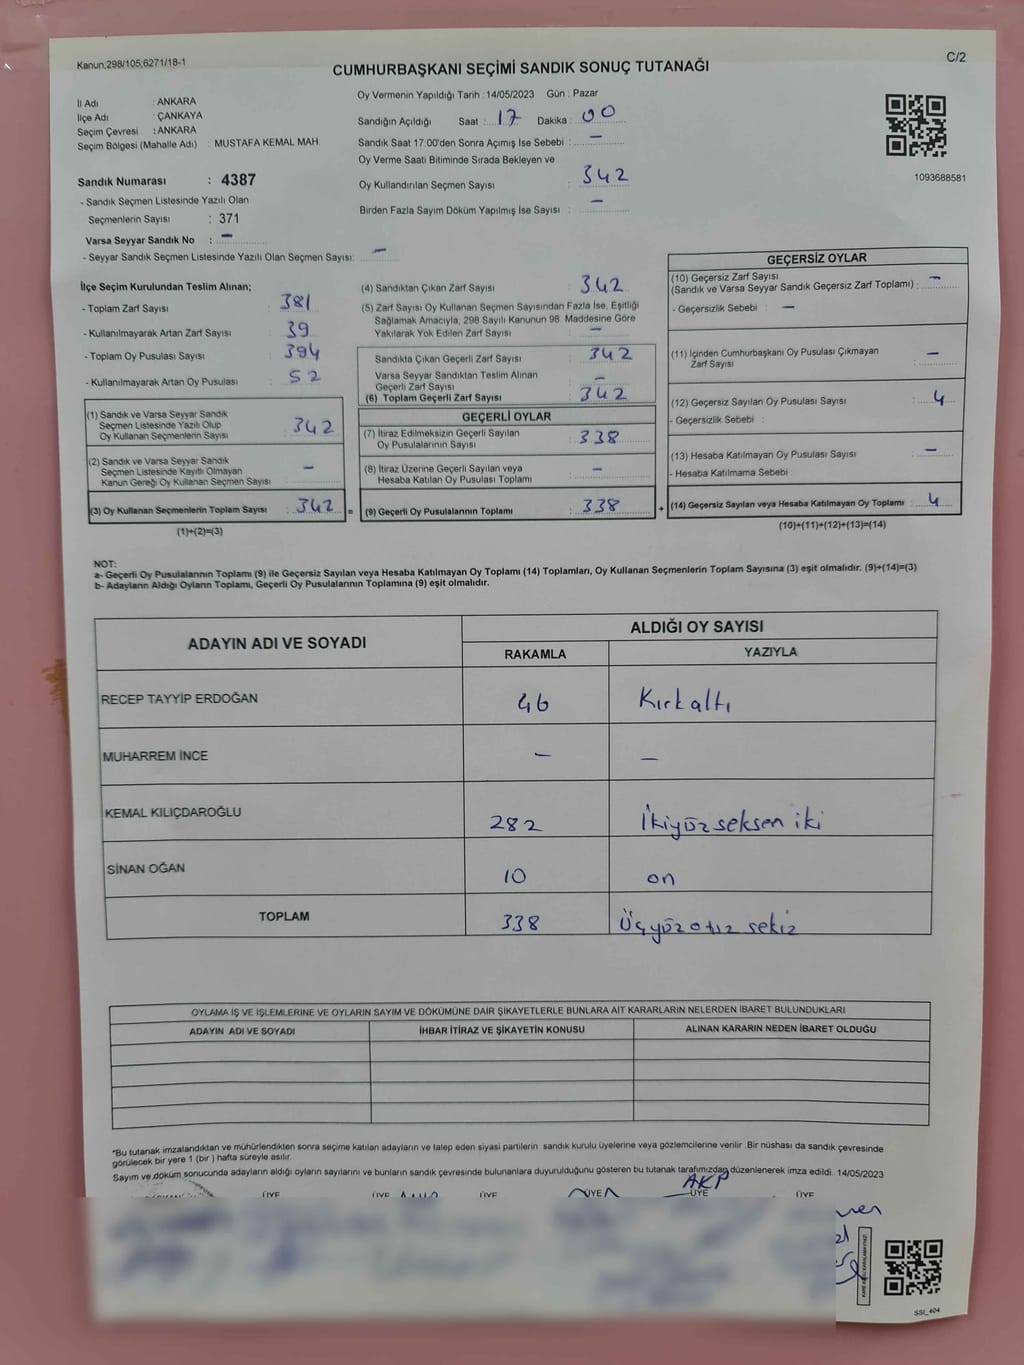 Kanun;298/105;6271/18-1
C/2
CUMHURBAŞKANI SEÇİMİ SANDIK SONUÇ TUTANAĞI
İl Adı : ANKARA
İlçe Adı : ÇANKAYA
Seçim Çevresi : ANKARA
Seçim Bölgesi (Mahalle Adı) : MUSTAFA KEMAL MAH.
Sandık Numarası : 4387
- Sandık Seçmen Listesinde Yazılı Olan
Seçmenlerin Sayısı : 371
Varsa Seyyar Sandık No : -
- Seyyar Sandık Seçmen Listesinde Yazılı Olan Seçmen Sayısı: -
Oy Vermenin Yapıldığı Tarih : 14/05/2023 Gün : Pazar
Sandığın Açıldığı Saat : 17 Dakika : 00
Sandık Saat 17:00'den Sonra Açımış İse Sebebi : -
Oy Verme Saati Bitiminde Sırada Bekleyen ve
Oy Kullandırılan Seçmen Sayısı : 342
Birden Fazla Sayım Döküm Yapılmış İse Sayısı : -
1093688581
İlçe Seçim Kurulundan Teslim Alınan;
- Toplam Zarf Sayısı : 381
- Kullanılmayarak Artan Zarf Sayısı : 39
- Toplam Oy Pusulası Sayısı : 394
- Kullanılmayarak Artan Oy Pusulası : 52
(1) Sandık ve Varsa Seyyar Sandık
Seçmen Listesinde Yazılı Olup
Oy Kullanan Seçmenlerin Sayısı : 342
(2) Sandık ve Varsa Seyyar Sandık
Seçmen Listesinde Kayıtlı Olmayan
Kanun Gereği Oy Kullanan Seçmen Sayısı : -
(3) Oy Kullanan Seçmenlerin Toplam Sayısı : 342 =
(1)+(2)=(3)
(4) Sandıktan Çıkan Zarf Sayısı : 342
(5) Zarf Sayısı Oy Kullanan Seçmen Sayısından Fazla İse, Eşitliği
Sağlamak Amacıyla; 298 Sayılı Kanunun 98. Maddesine Göre
Yakılarak Yok Edilen Zarf Sayısı : -
Sandıkta Çıkan Geçerli Zarf Sayısı : 342
Varsa Seyyar Sandıktan Teslim Alınan
Geçerli Zarf Sayısı : -
(6) Toplam Geçerli Zarf Sayısı : 342
GEÇERLİ OYLAR
(7) İtiraz Edilmeksizin Geçerli Sayılan
Oy Pusulalarının Sayısı : 338
(8) İtiraz Üzerine Geçerli Sayılan veya
Hesaba Katılan Oy Pusulası Toplamı : -
(9) Geçerli Oy Pusulalarının Toplamı : 338 +
GEÇERSİZ OYLAR
(10) Geçersiz Zarf Sayısı
(Sandık ve Varsa Seyyar Sandık Geçersiz Zarf Toplamı) : -
- Geçersizlik Sebebi : -
(11) İçinden Cumhurbaşkanı Oy Pusulası Çıkmayan
Zarf Sayısı : -
(12) Geçersiz Sayılan Oy Pusulası Sayısı : 4
- Geçersizlik Sebebi :
(13) Hesaba Katılmayan Oy Pusulası Sayısı : -
- Hesaba Katılmama Sebebi :
(14) Geçersiz Sayılan veya Hesaba Katılmayan Oy Toplamı : 4
(10)+(11)+(12)+(13)=(14)
NOT:
a- Geçerli Oy Pusulalarının Toplamı (9) ile Geçersiz Sayılan veya Hesaba Katılmayan Oy Toplamı (14) Toplamları, Oy Kullanan Seçmenlerin Toplam Sayısına (3) eşit olmalıdır. (9)+(14)=(3)
b- Adayların Aldığı Oyların Toplamı, Geçerli Oy Pusulalarının Toplamına (9) eşit olmalıdır.
ADAYIN ADI VE SOYADI ALDIĞI OY SAYISI
RAKAMLA YAZIYLA
RECEP TAYYİP ERDOĞAN 46 Kırkaltı
MUHARREM İNCE - -
KEMAL KILIÇDAROĞLU 282 İkiyüzseksen iki
SİNAN OĞAN 10 on
TOPLAM 338 Üçyüzotuz sekiz
OYLAMA İŞ VE İŞLEMLERİNE VE OYLARIN SAYIM VE DÖKÜMÜNE DAİR ŞİKAYETLERLE BUNLARA AİT KARARLARIN NELERDEN İBARET BULUNDUKLARI
ADAYIN ADI VE SOYADI İHBAR İTİRAZ VE ŞİKAYETİN KONUSU ALINAN KARARIN NEDEN İBARET OLDUĞU
*Bu tutanak imzalandıktan ve mühürlendikten sonra seçime katılan adayların ve talep eden siyasi partilerin sandık kurulu üyelerine veya gözlemcilerine verilir. Bir nüshası da sandık çevresinde
görülecek bir yere 1 (bir ) hafta süreyle asılır.
Sayım ve döküm sonucunda adayların aldığı oyların sayılarını ve bunların sandık çevresinde bulunanlara duyurulduğunu gösteren bu tutanak tarafımızdan düzenlenerek imza edildi. 14/05/2023
AKP
ÜYE ÜYE ÜYE ÜYE ÜYE ÜYE
SSI_404